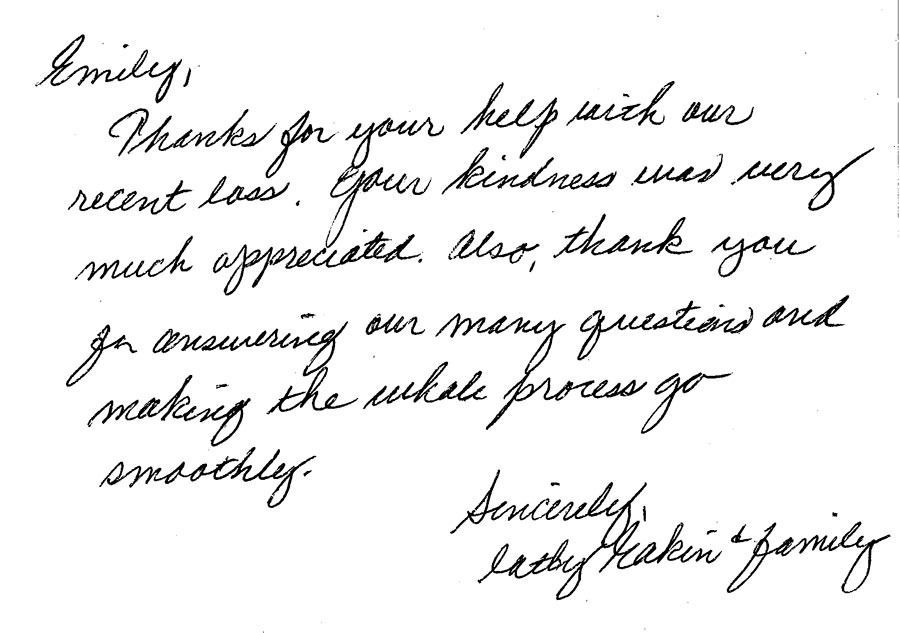 Emily,
Thanks for your help with our
recent loss. Your kindness was very
much appreciated. Also, thank you
for answering our many questions and
making the whole process go
smoothly.
Sincerely,
Cathy Eakin & family